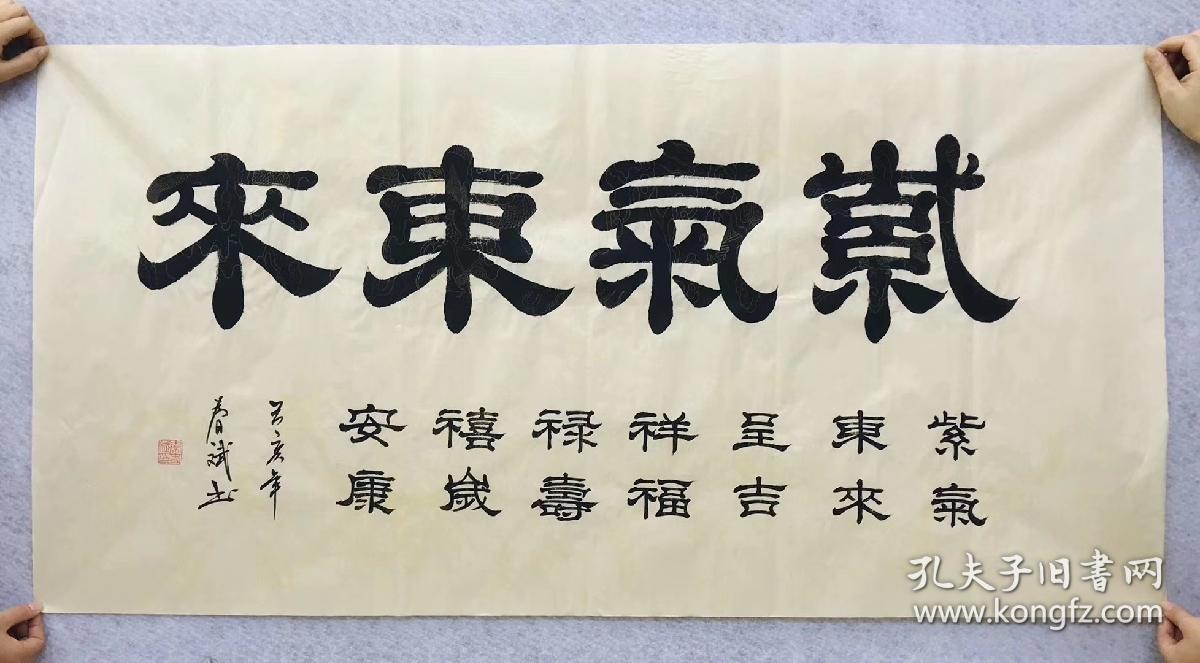 紫氣東來
紫氣
東來
呈吉
祥福
禄壽
禧歲
安康
己亥年
春斌书
孔夫子旧書网
www.kongfz.com